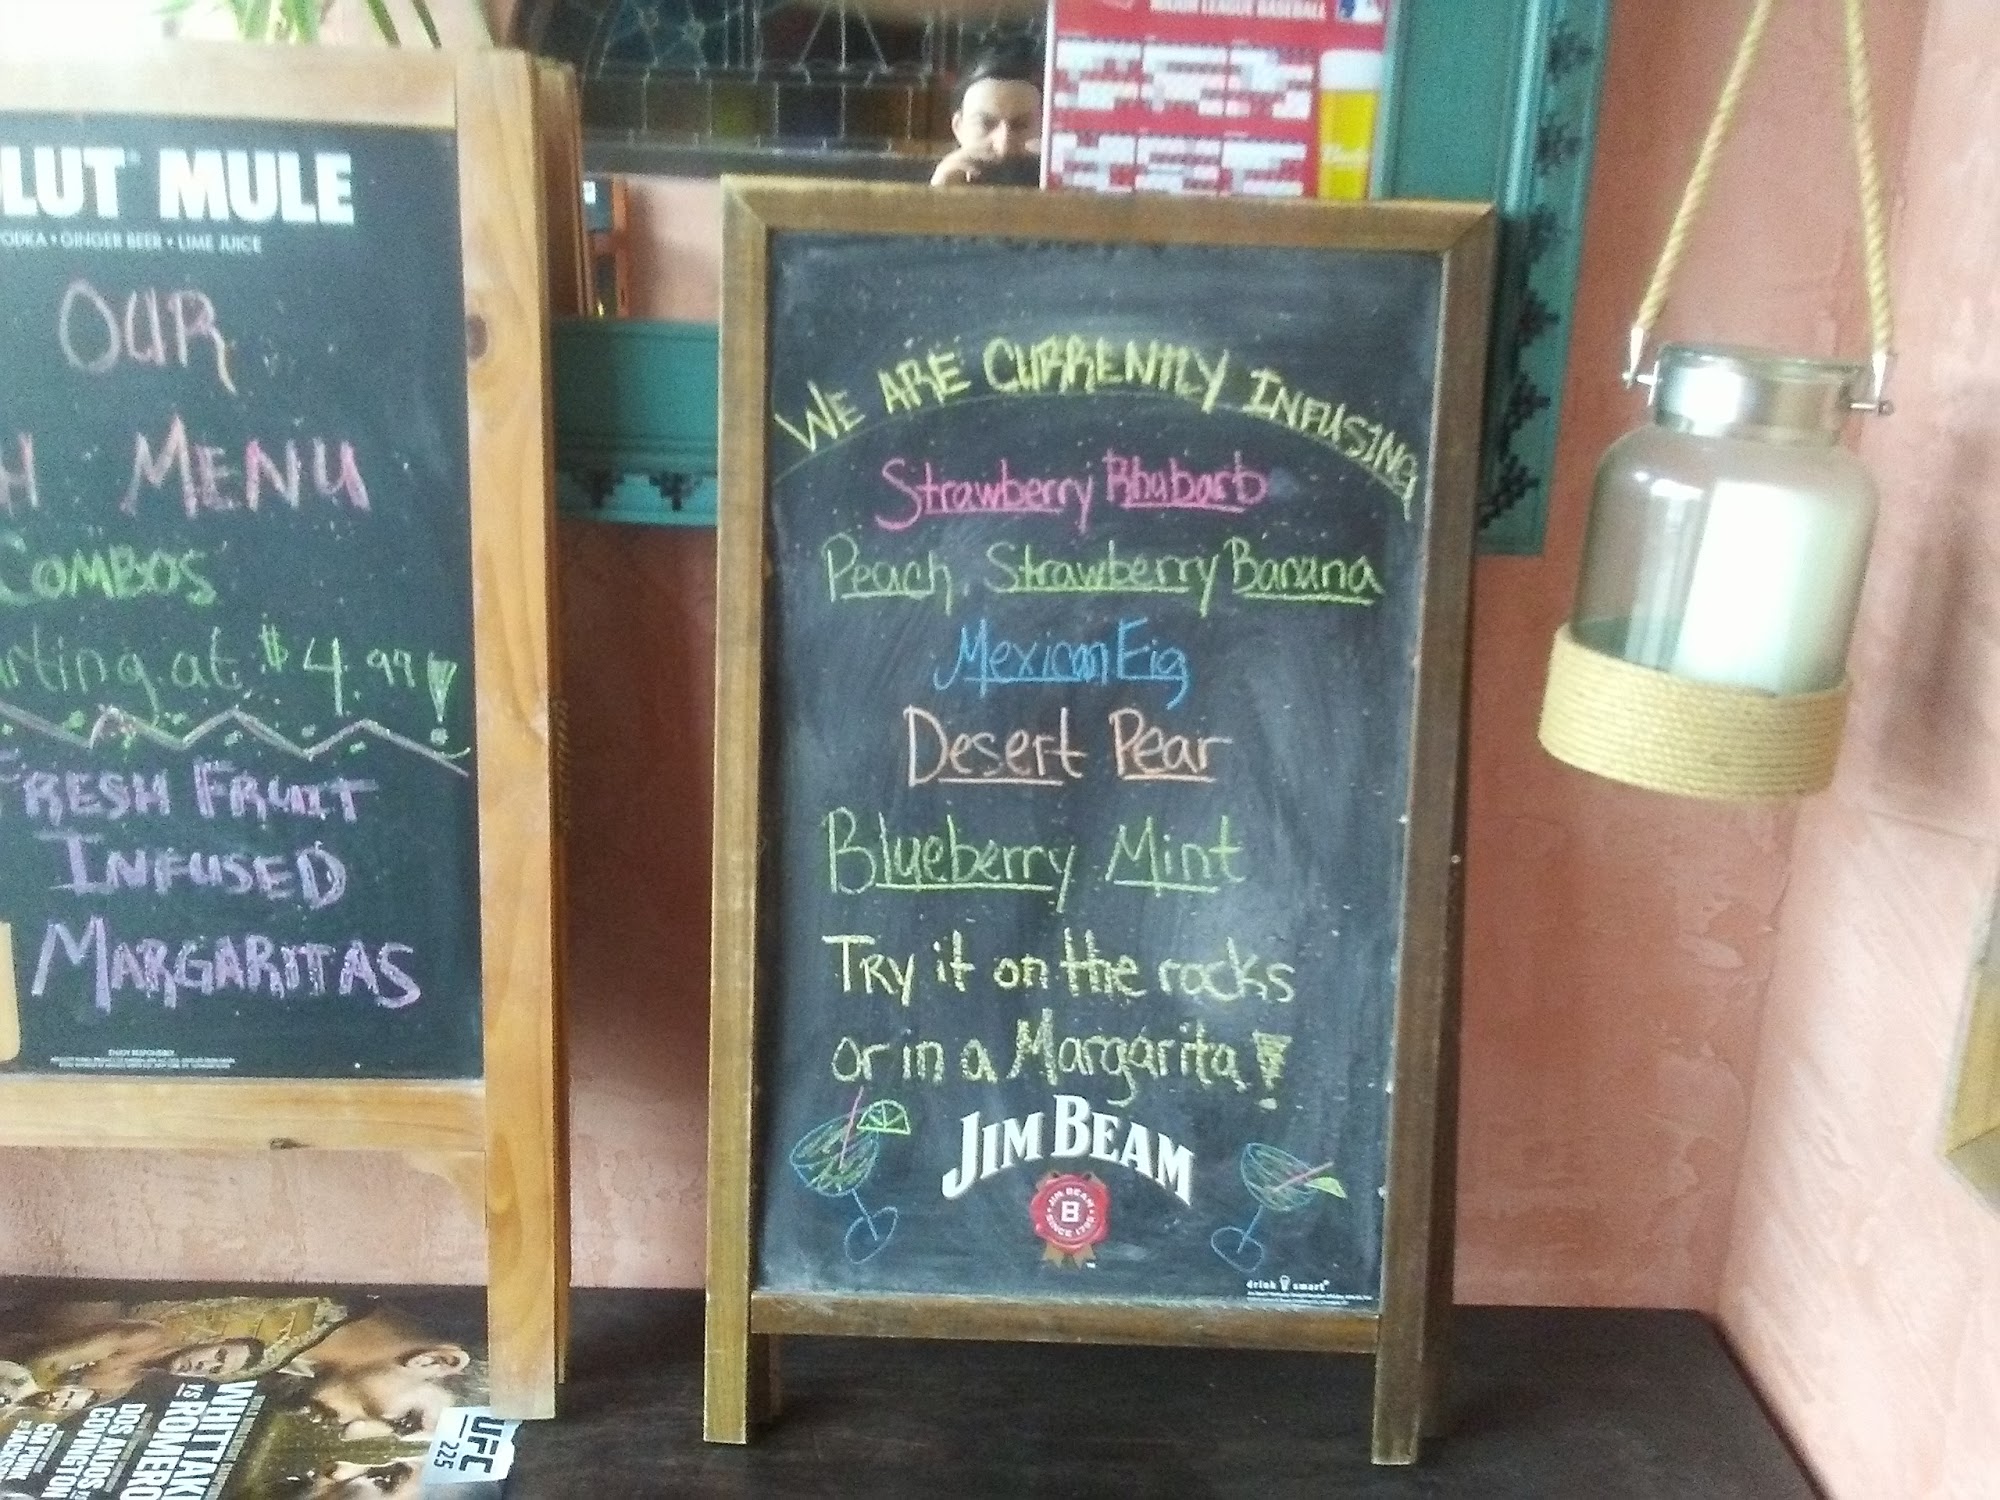 MAJOR LEAGUE BASEBALL
LUT MULE
VODKA • GINGER BEER • LIME JUICE
OUR
H MENU
COMBOS
rting at $4.99!
FRESH FRUIT
INFUSED
MARGARITAS
ENJOY RESPONSIBLY.
WE ARE CURRENTLY INFUSING
Strawberry Rhubarb
Peach, Strawberry Banana
Mexican Fig
Desert Pear
Blueberry Mint
TRY it on the rocks
or in a Margarita!
JIM BEAM
JIM BEAM
B
SINCE 1795
drink smart
WHITTAK
VS ROMERO
DOS ANJOS
COVINGTON
CM PUNK
JACKS
UFC
225